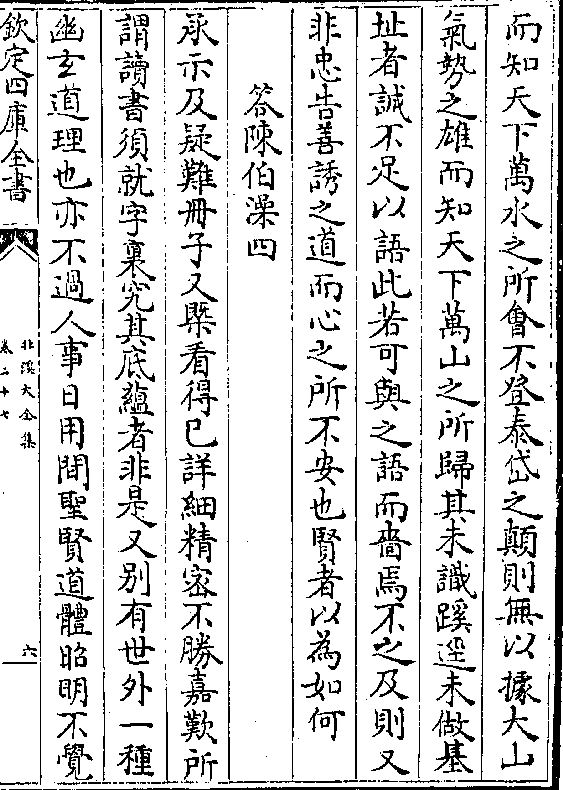 而知天下萬水之所會不登泰岱之顛則無以據大山
氣勢之雄而知天下萬山之所歸其未識蹊逕未做基
址者誠不足以語此若可與之語而嗇焉不之及則又
非忠告善誘之道而心之所不安也賢者以為如何
答陳伯澡四
承示及疑難冊子又槩看得已詳細精密不勝嘉歎所
謂讀書須就字裏究其底蘊者非是又别有世外一種
幽玄道理也亦不過人事日用間聖賢道體昭明不覺
欽定四庫全書
北溪大全集
卷二十七
六